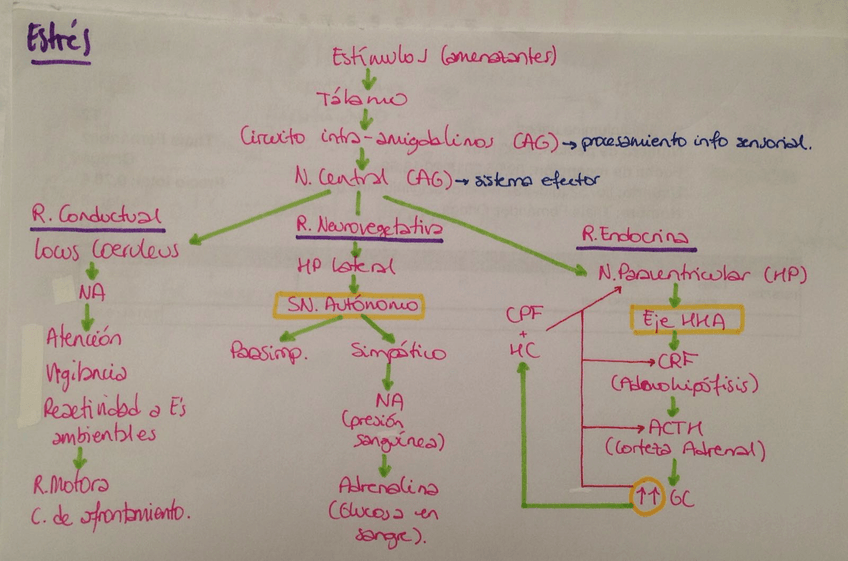 Estrés
Estímulos (amenazantes)
Tálamo
Circuito intra-amigdalinos (AG) → procesamiento info sensorial.
N. Central (AG) → sistema efector
R. Conductual
Locus Coeruleus
NA
Atención
Vigilancia
Reactividad a E's
ambientales
R. Motora
C. de afrontamiento.
R. Neurovegetativa
HP Lateral
SN. Autónomo
Parasimp.
Simpático
NA
(presión
sanguínea)
Adrenalina
(Glucosa en
sangre).
R. Endocrina
N. Paraventricular (HP)
Eje HHA
CRF
(Adenohipófisis)
ACTH
(Corteza Adrenal)
↑↑ GC
CPF
+
HC